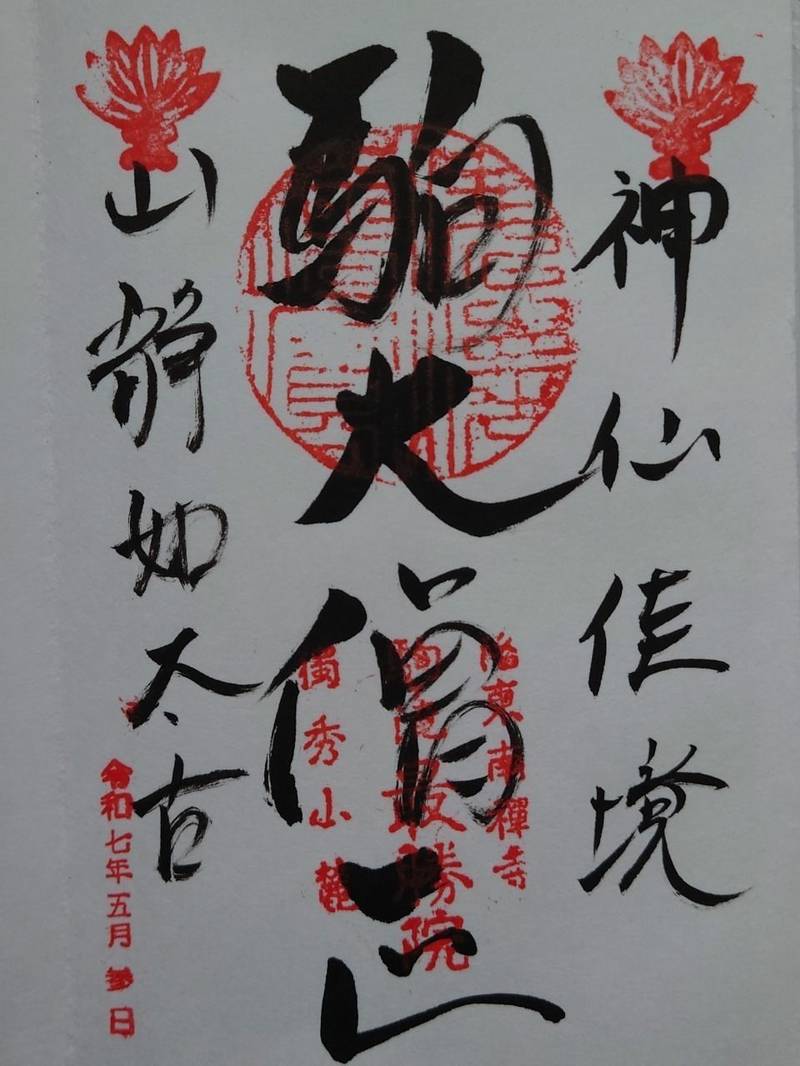 神仙佳境
駒大僧正
山静如太古
洛東南禪寺
最勝院
獨秀山麓
令和七年五月参日